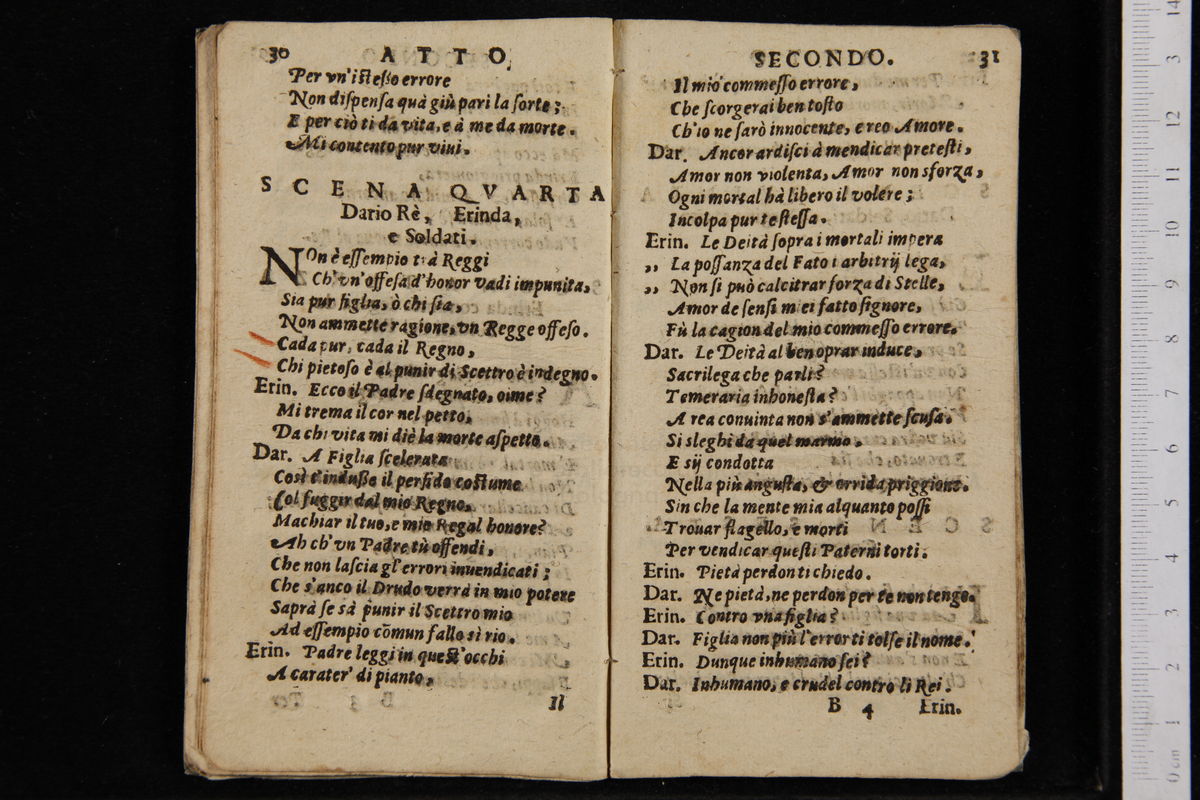 30 ATTO
Per vn'iſteſſo errore
Non diſpenſa quà giù pari la ſorte;
E per ciò ti da vita, e à me da morte.
Mi contento pur viui.
SCENA QVARTA
Dario Rè, Erinda,
e Soldati.
NOn è eſſempio trà Reggi
Ch'vn'offeſa d'honor vadi impunita,
Sia pur figlia, ò chi ſia,
Non ammette ragione, vn Regge offeſo.
Cada pur, cada il Regno,
Chi pietoſo è al punir di Scettro è indegno.
Erin. Ecco il Padre ſdegnato, oime?
Mi trema il cor nel petto,
Da chi vita mi diè la morte aſpetto.
Dar. A Figlia ſcelerata
Così t'induſſe il perfido coſtume
Col fuggir dal mio Regno,
Machiar il tuo, e mio Regal honore?
Ah ch'vn Padre tù offendi,
Che non laſcia gl'errori inuendicati;
Che s'anco il Drudo verrà in mio potere
Saprà ſe sà punir il Scettro mio
Ad eſſempio cōmun fallo sì rio.
Erin. Padre leggi in queſt'occhi
A carater' di pianto,
Il
SECONDO. 31
Il mio commeſſo errore,
Che ſcorgerai ben toſto
Ch'io ne ſarò innocente, e reo Amore.
Dar. Ancor ardiſci à mendicar preteſti,
Amor non violenta, Amor non sforza,
Ogni mortal hà libero il volere;
Incolpa pur te ſteſſa.
Erin. Le Deità ſopra i mortali impera
,, La poſſanza del Fato i arbitrij lega,
,, Non ſi può calcitrar forza di Stelle,
Amor de ſenſi miei fatto ſignore,
Fù la cagion del mio commeſſo errore.
Dar. Le Deità al ben oprar induce,
Sacrilega che parli?
Temeraria inhoneſta?
A rea conuinta non s'ammette ſcuſa.
Si sleghi da quel marmo,
E sij condotta
Nella più anguſta, & orrida priggione.
Sin che la mente mia alquanto poſſi
Trouar flagello, e morti
Per vendicar queſti Paterni torti.
Erin. Pietà perdon ti chiedo.
Dar. Ne pietà, ne perdon per te non tengo.
Erin. Contro vna figlia?
Dar. Figlia non più l'error ti tolſe il nome.
Erin. Dunque inhumano ſei?
Dar. Inhumano, e crudel contro li Rei.
B 4 Erin.
0 cm 1 2 3 4 5 6 7 8 9 10 11 12 3 14